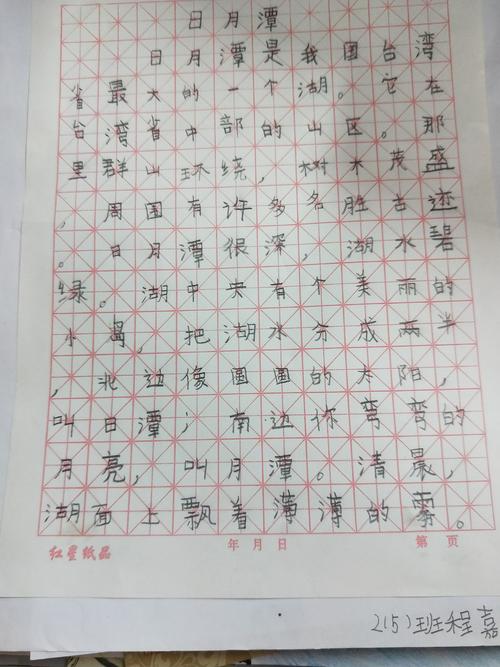 日月潭
日月潭是我国台湾
省最大的一个湖。它在
台湾省中部的山区。那
里群山环绕，树木茂盛
，周围有许多名胜古迹
。日月潭很深，湖水碧
绿。湖中央有个美丽的
小岛，把湖水分成两半
，北边像圆圆的太阳，
叫日潭；南边你弯弯的
月亮，叫月潭。清晨，
湖面上飘着薄薄的雾。
红星纸品 年月日 第 页
2(5)班程嘉